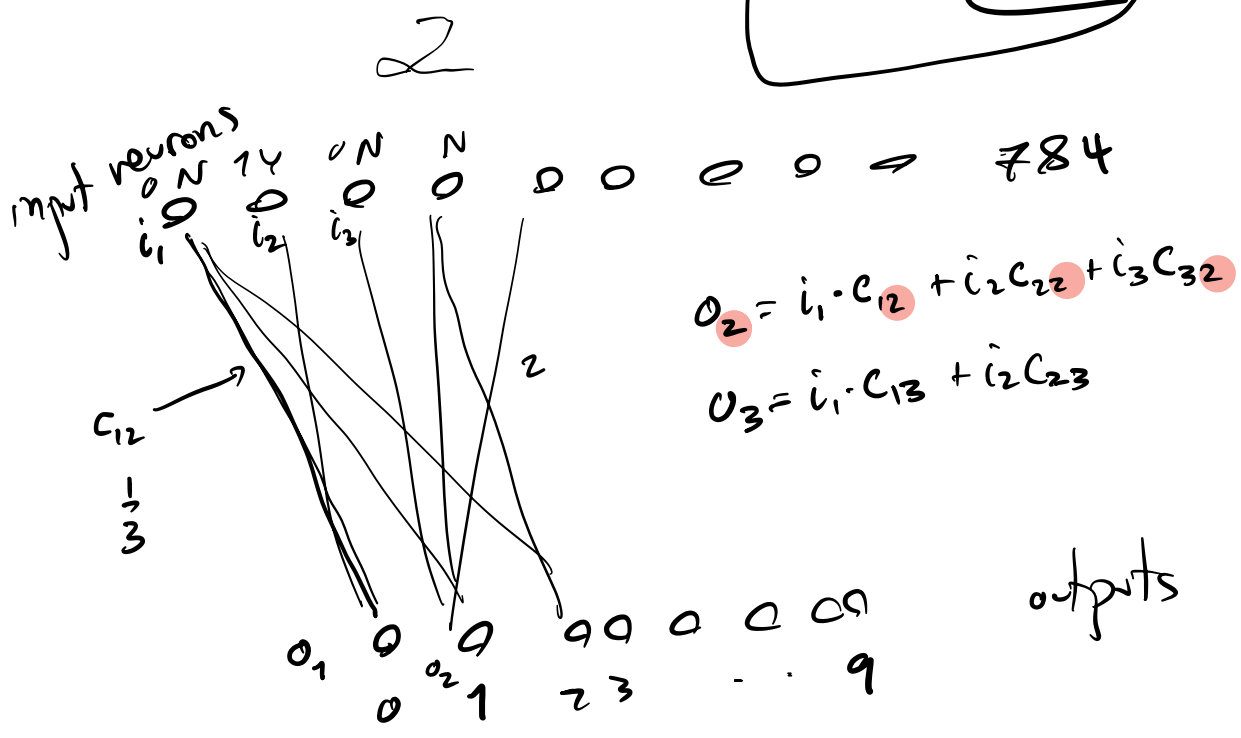 2
input neurons
0 N 1Y 0 N N
784
i₁ i₂ i₃
O₂ = i₁·C₁₂ + i₂C₂₂ + i₃C₃₂
2
O₃ = i₁·C₁₃ + i₂C₂₃
C₁₂
1/3
outputs
O₁ O₂
0 1 2 3 . . 9